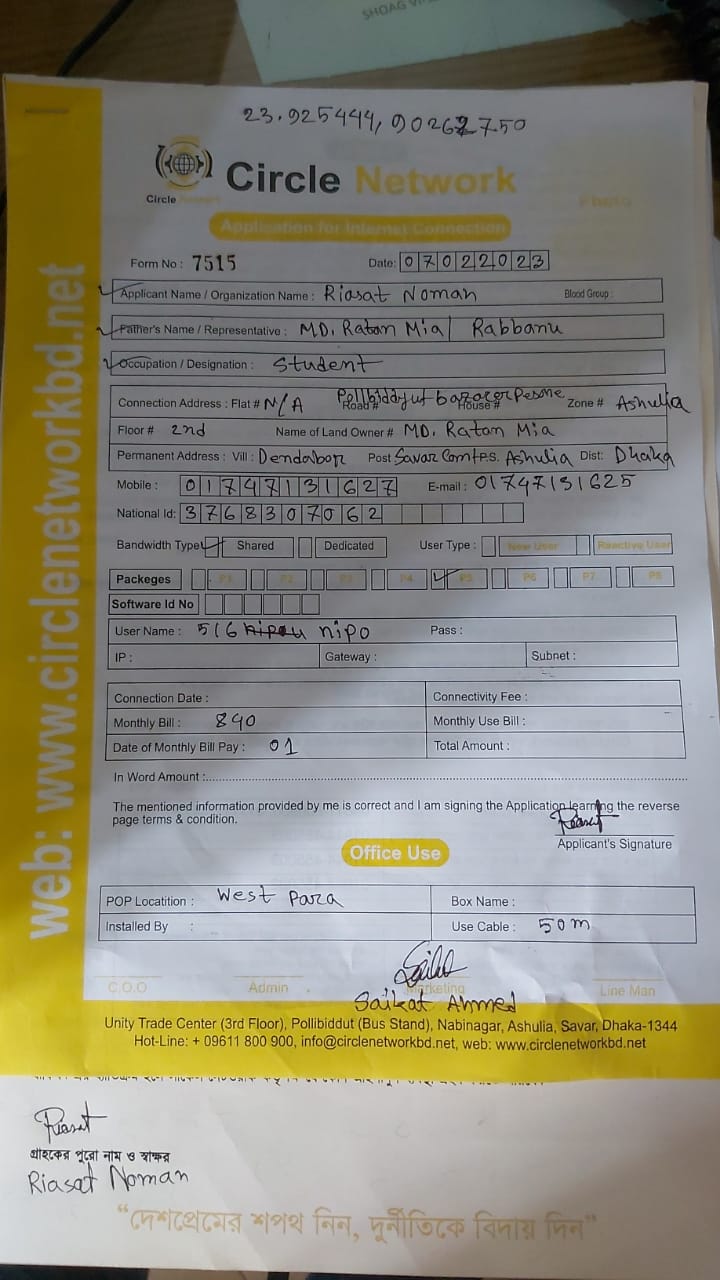 SHOAG
23.925444, 90262750
Circle Network
Circle Network
Photo
Application for Internet Connection
Form No : 7515 Date: 07022023
Applicant Name / Organization Name : Riasat Noman Blood Group :
Father's Name / Representative : MD. Ratan Mia / Rabbanu
Occupation / Designation : Student
Connection Address : Flat # N/A Road # Pollibiddyut bazarer Pesone House # Zone # Ashulia
Floor # 2nd Name of Land Owner # MD. Ratan Mia
Permanent Address : Vill : Dendabor Post Savar Cant P.S. Ashulia Dist: Dhaka
Mobile : 01747131627 E-mail : 01747131625
National Id: 3768307062
Bandwidth Type Shared Dedicated User Type : New User Reactive User
Packeges P1 P2 P3 P4 P5 P6 P7 P8
Software Id No
User Name : 516 nipo Pass :
IP : Gateway : Subnet :
Connection Date : Connectivity Fee :
Monthly Bill : 840 Monthly Use Bill :
Date of Monthly Bill Pay : 01 Total Amount :
In Word Amount :
The mentioned information provided by me is correct and I am signing the Application learning the reverse
page terms & condition.
Riasat
Applicant's Signature
Office Use
POP Locatition : West Para Box Name :
Installed By : Use Cable : 50m
C.O.O Admin Marketing Line Man
Saikat Ahmed
Unity Trade Center (3rd Floor), Pollibiddut (Bus Stand), Nabinagar, Ashulia, Savar, Dhaka-1344
Hot-Line: + 09611 800 900, info@circlenetworkbd.net, web: www.circlenetworkbd.net
web: www.circlenetworkbd.net
Riasat
গ্রাহকের পুরো নাম ও স্বাক্ষর
Riasat Noman
“দেশপ্রেমের শপথ নিন, দুর্নীতিকে বিদায় দিন”